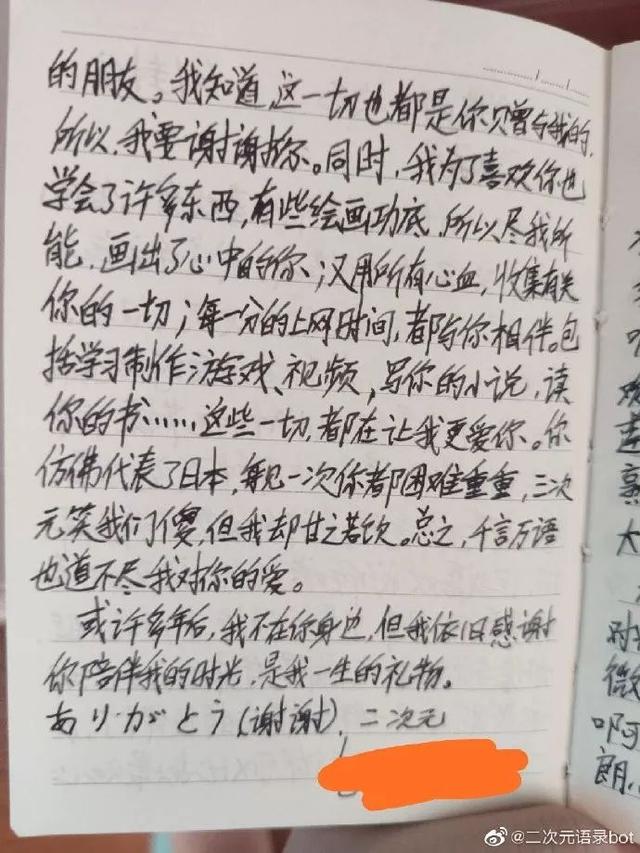 的朋友。我知道,这一切也都是你赠与我的,
所以,我要谢谢你。同时,我为了喜欢你,也
学会了许多东西,有些绘画功底,所以,尽我所
能,画出了心中的你;又用所有心血,收集有关
你的一切;每一分的上网时间,都与你相伴。包
括学习制作游戏、视频,写你的小说,读
你的书……这些一切,都在让我更爱你。你
仿佛代表了日本,每见一次你都困难重重,三次
元笑我们傻,但我却甘之若饮。总之,千言万语
也道不尽我对你的爱。
或许多年后,我不在你身边,但我依旧感谢
你陪伴我的时光,是我一生的礼物。
ありがとう(谢谢),二次元
大
对
微
啊
朗
@二次元语录bot